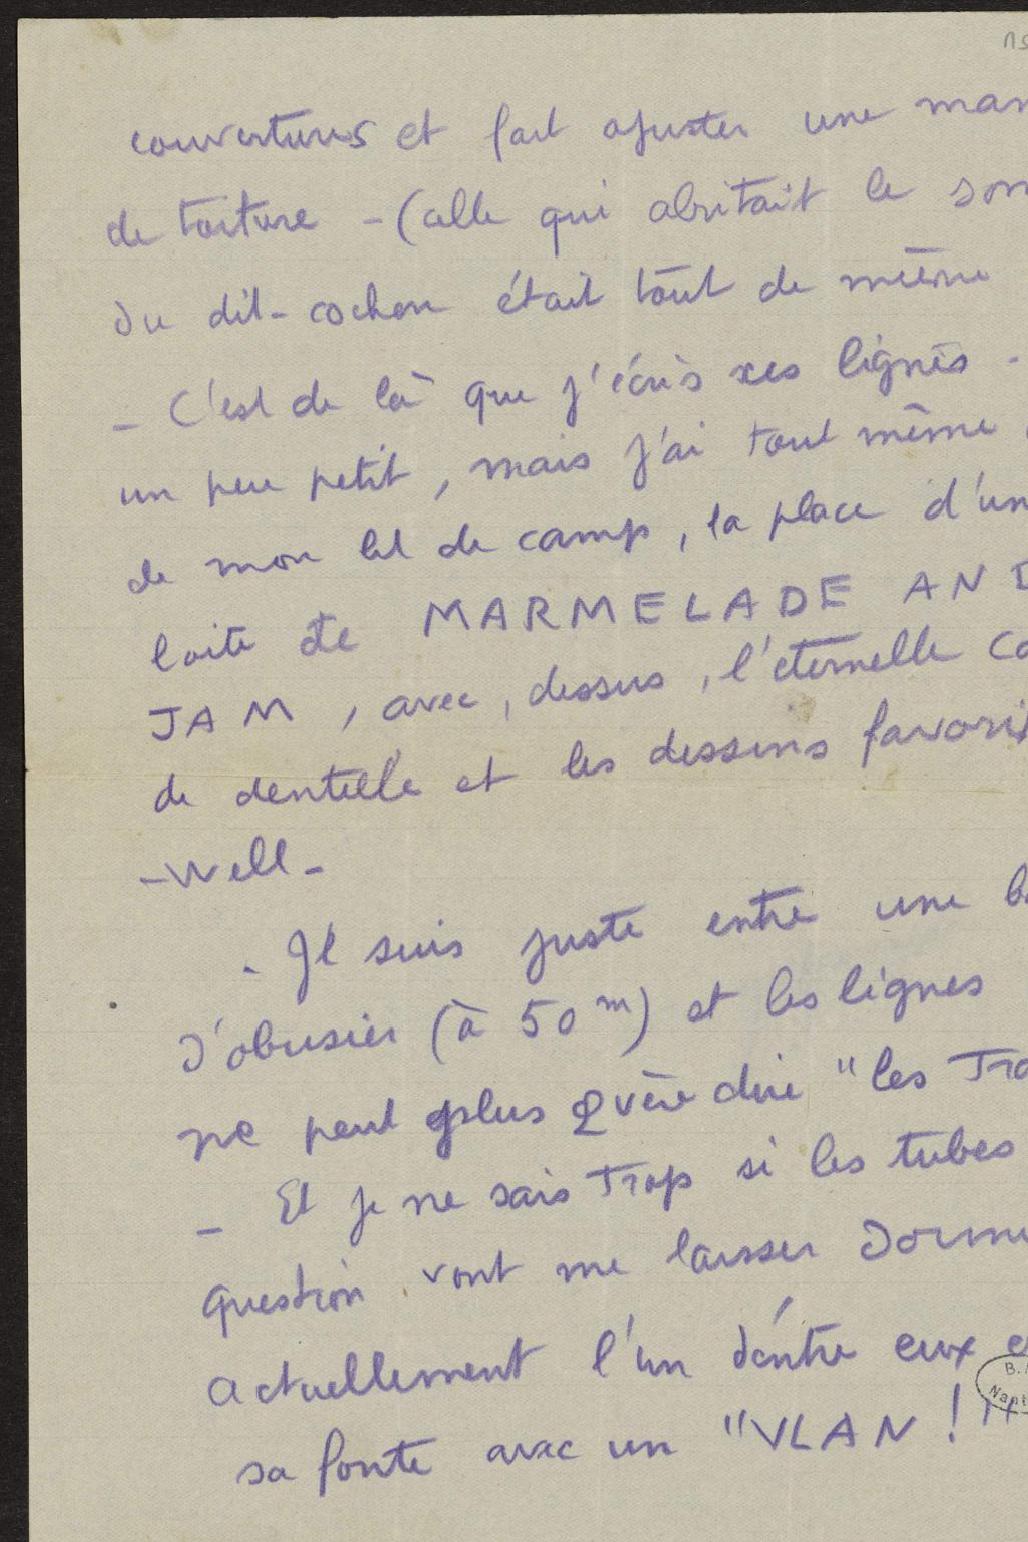 couvertures et fait ajuster une man
de toiture - (celle qui abritait le som
du dit-cochon était tout de même
- C'est de là que j'écris ces lignes -
un peu petit, mais j'ai tout même
de mon lit de camp, la place d'un
boite de MARMELADE AND
JAM, avec, dessus, l'éternelle Ca
de dentelle et les dessins favoris
-Well-
- Je suis juste entre une b
d'obusier (à 50m) et les lignes
ne peut plus guère dire "les Tra
- Et je ne sais Trop si les tubes
question vont me laisser dormi
actuellement l'un d'entre eux e
sa fonte avec un "VLAN!"
B.
Nant